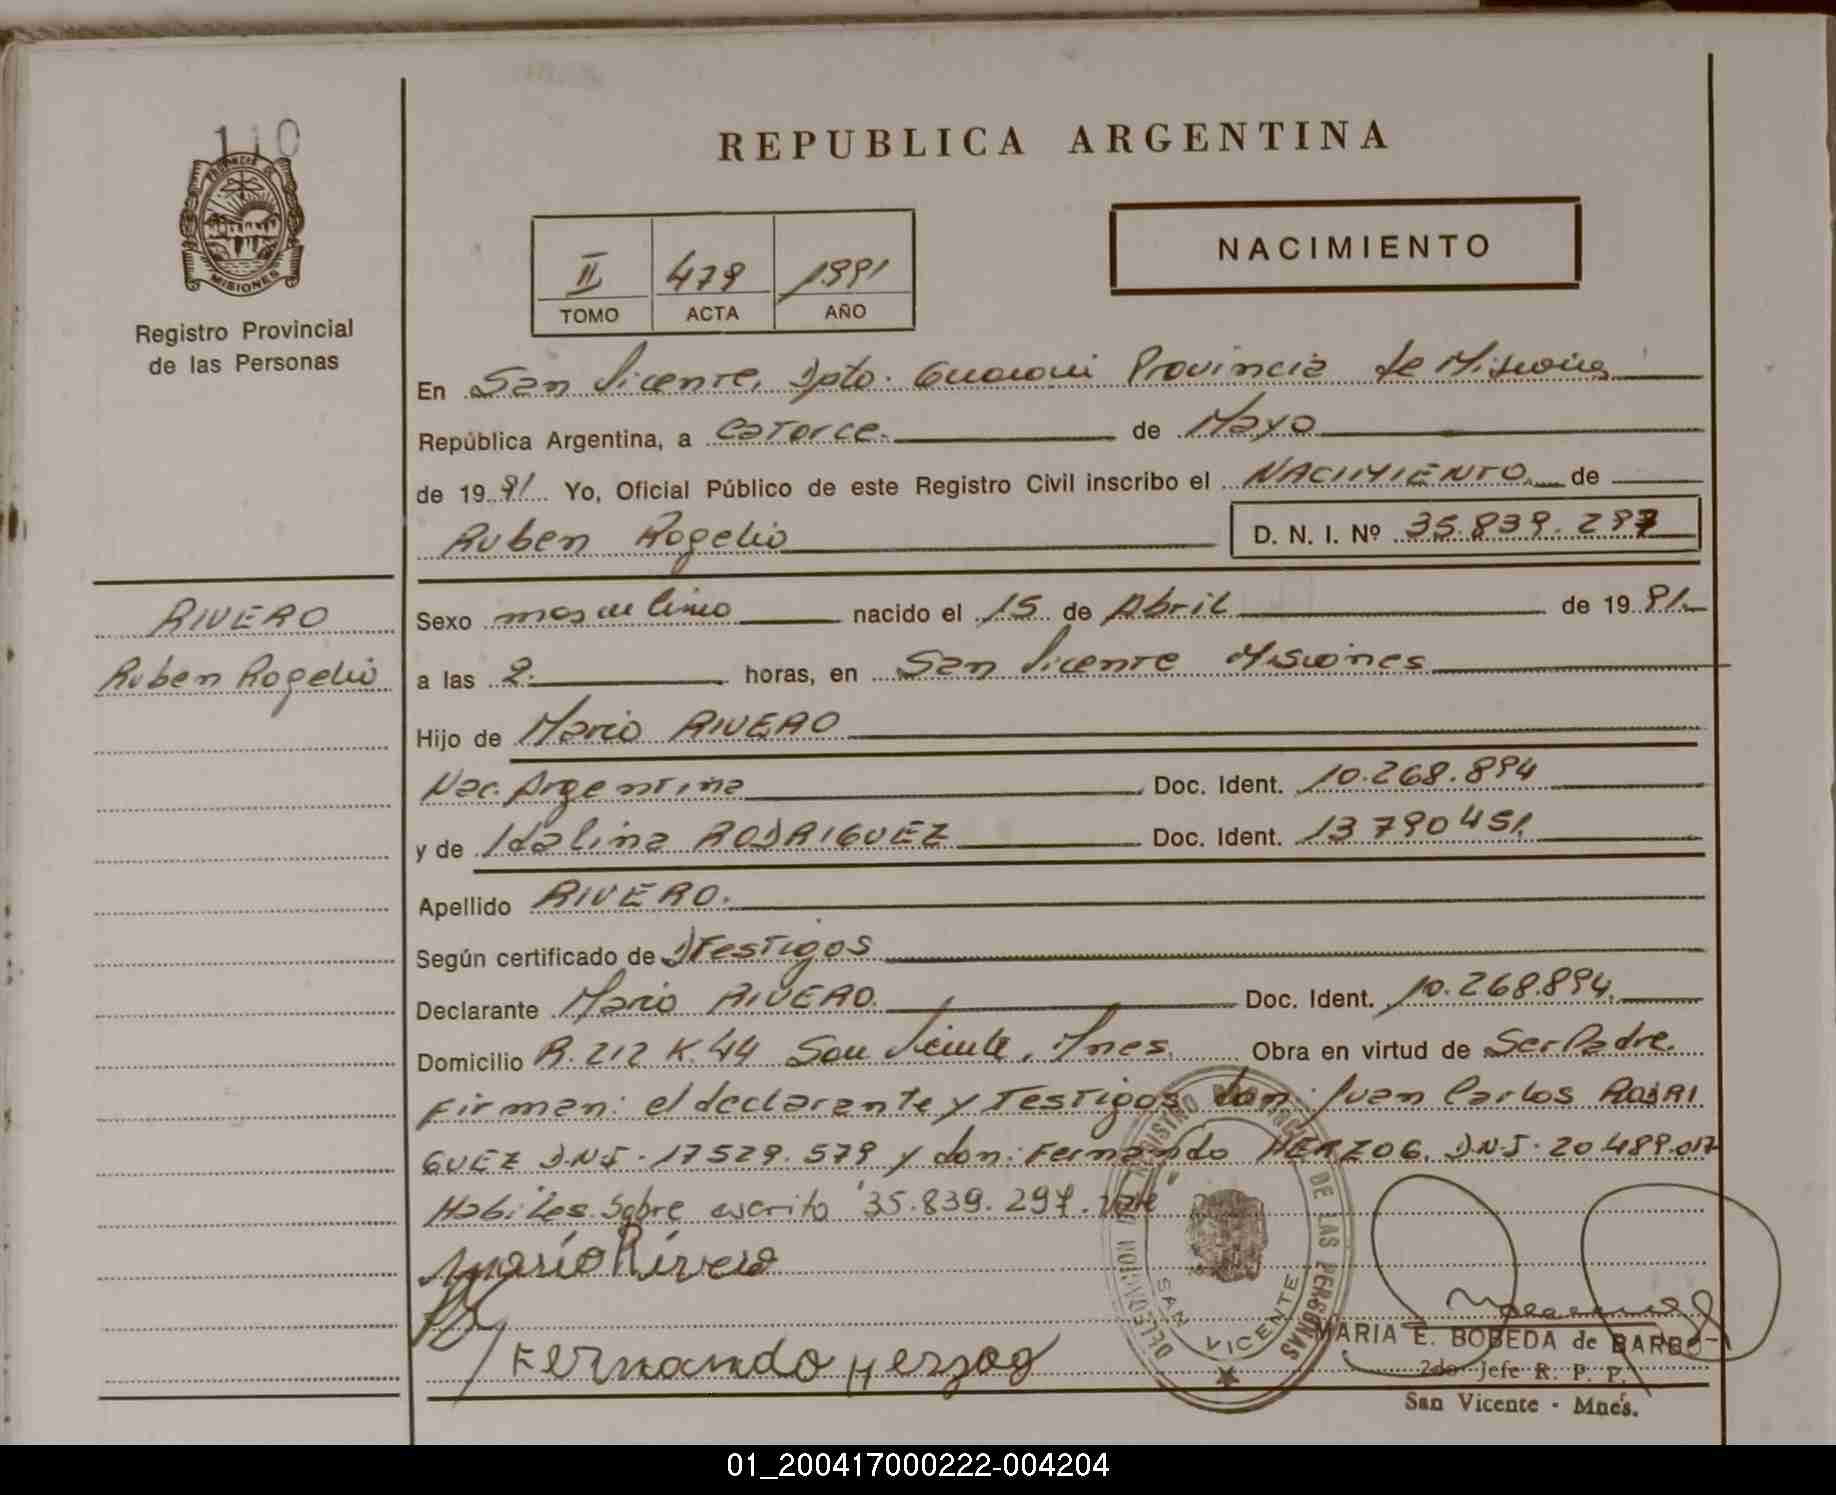 110
PROVINCIA DE
MISIONES
Registro Provincial
de las Personas
REPUBLICA ARGENTINA
II 479 1991
TOMO ACTA AÑO
NACIMIENTO
En San Vicente, Dpto. Guarani Provincia de Misiones
República Argentina, a Catorce. de Mayo
de 19 91 Yo, Oficial Público de este Registro Civil inscribo el NACIMIENTO de
Ruben Rogelio D. N. I. Nº 35.839.297
RIVERO
Ruben Rogelio
Sexo masculino nacido el 15 de Abril de 19 91.
a las 2. horas, en San Vicente Misiones
Hijo de Mario RIVERO
Nac. Argentina Doc. Ident. 10.268.894
y de Idalina RODRIGUEZ Doc. Ident. 13 790 451.
Apellido RIVERO.
Según certificado de Testigos
Declarante Mario RIVERO. Doc. Ident. 10.268.894.
Domicilio R. 212 K. 44 San Vicente, Mnes. Obra en virtud de Ser Padre.
Firman: el declarante y Testigos don: Juan Carlos RODRI
GUEZ D.N.I. 17529.579 y don: Fernando HERZOG. D.N.I. 20.489.017
Habiles. Sobre escrito "35.839.297. vale"
Mario Rivero
Fernando Herzog
DELEGACION DEL REGISTRO PROVINCIAL DE LAS PERSONAS
SAN VICENTE
MARIA E. BOBEDA de BARBO-
2do Jefe R. P. P.
San Vicente - Mnes.
01_200417000222-004204